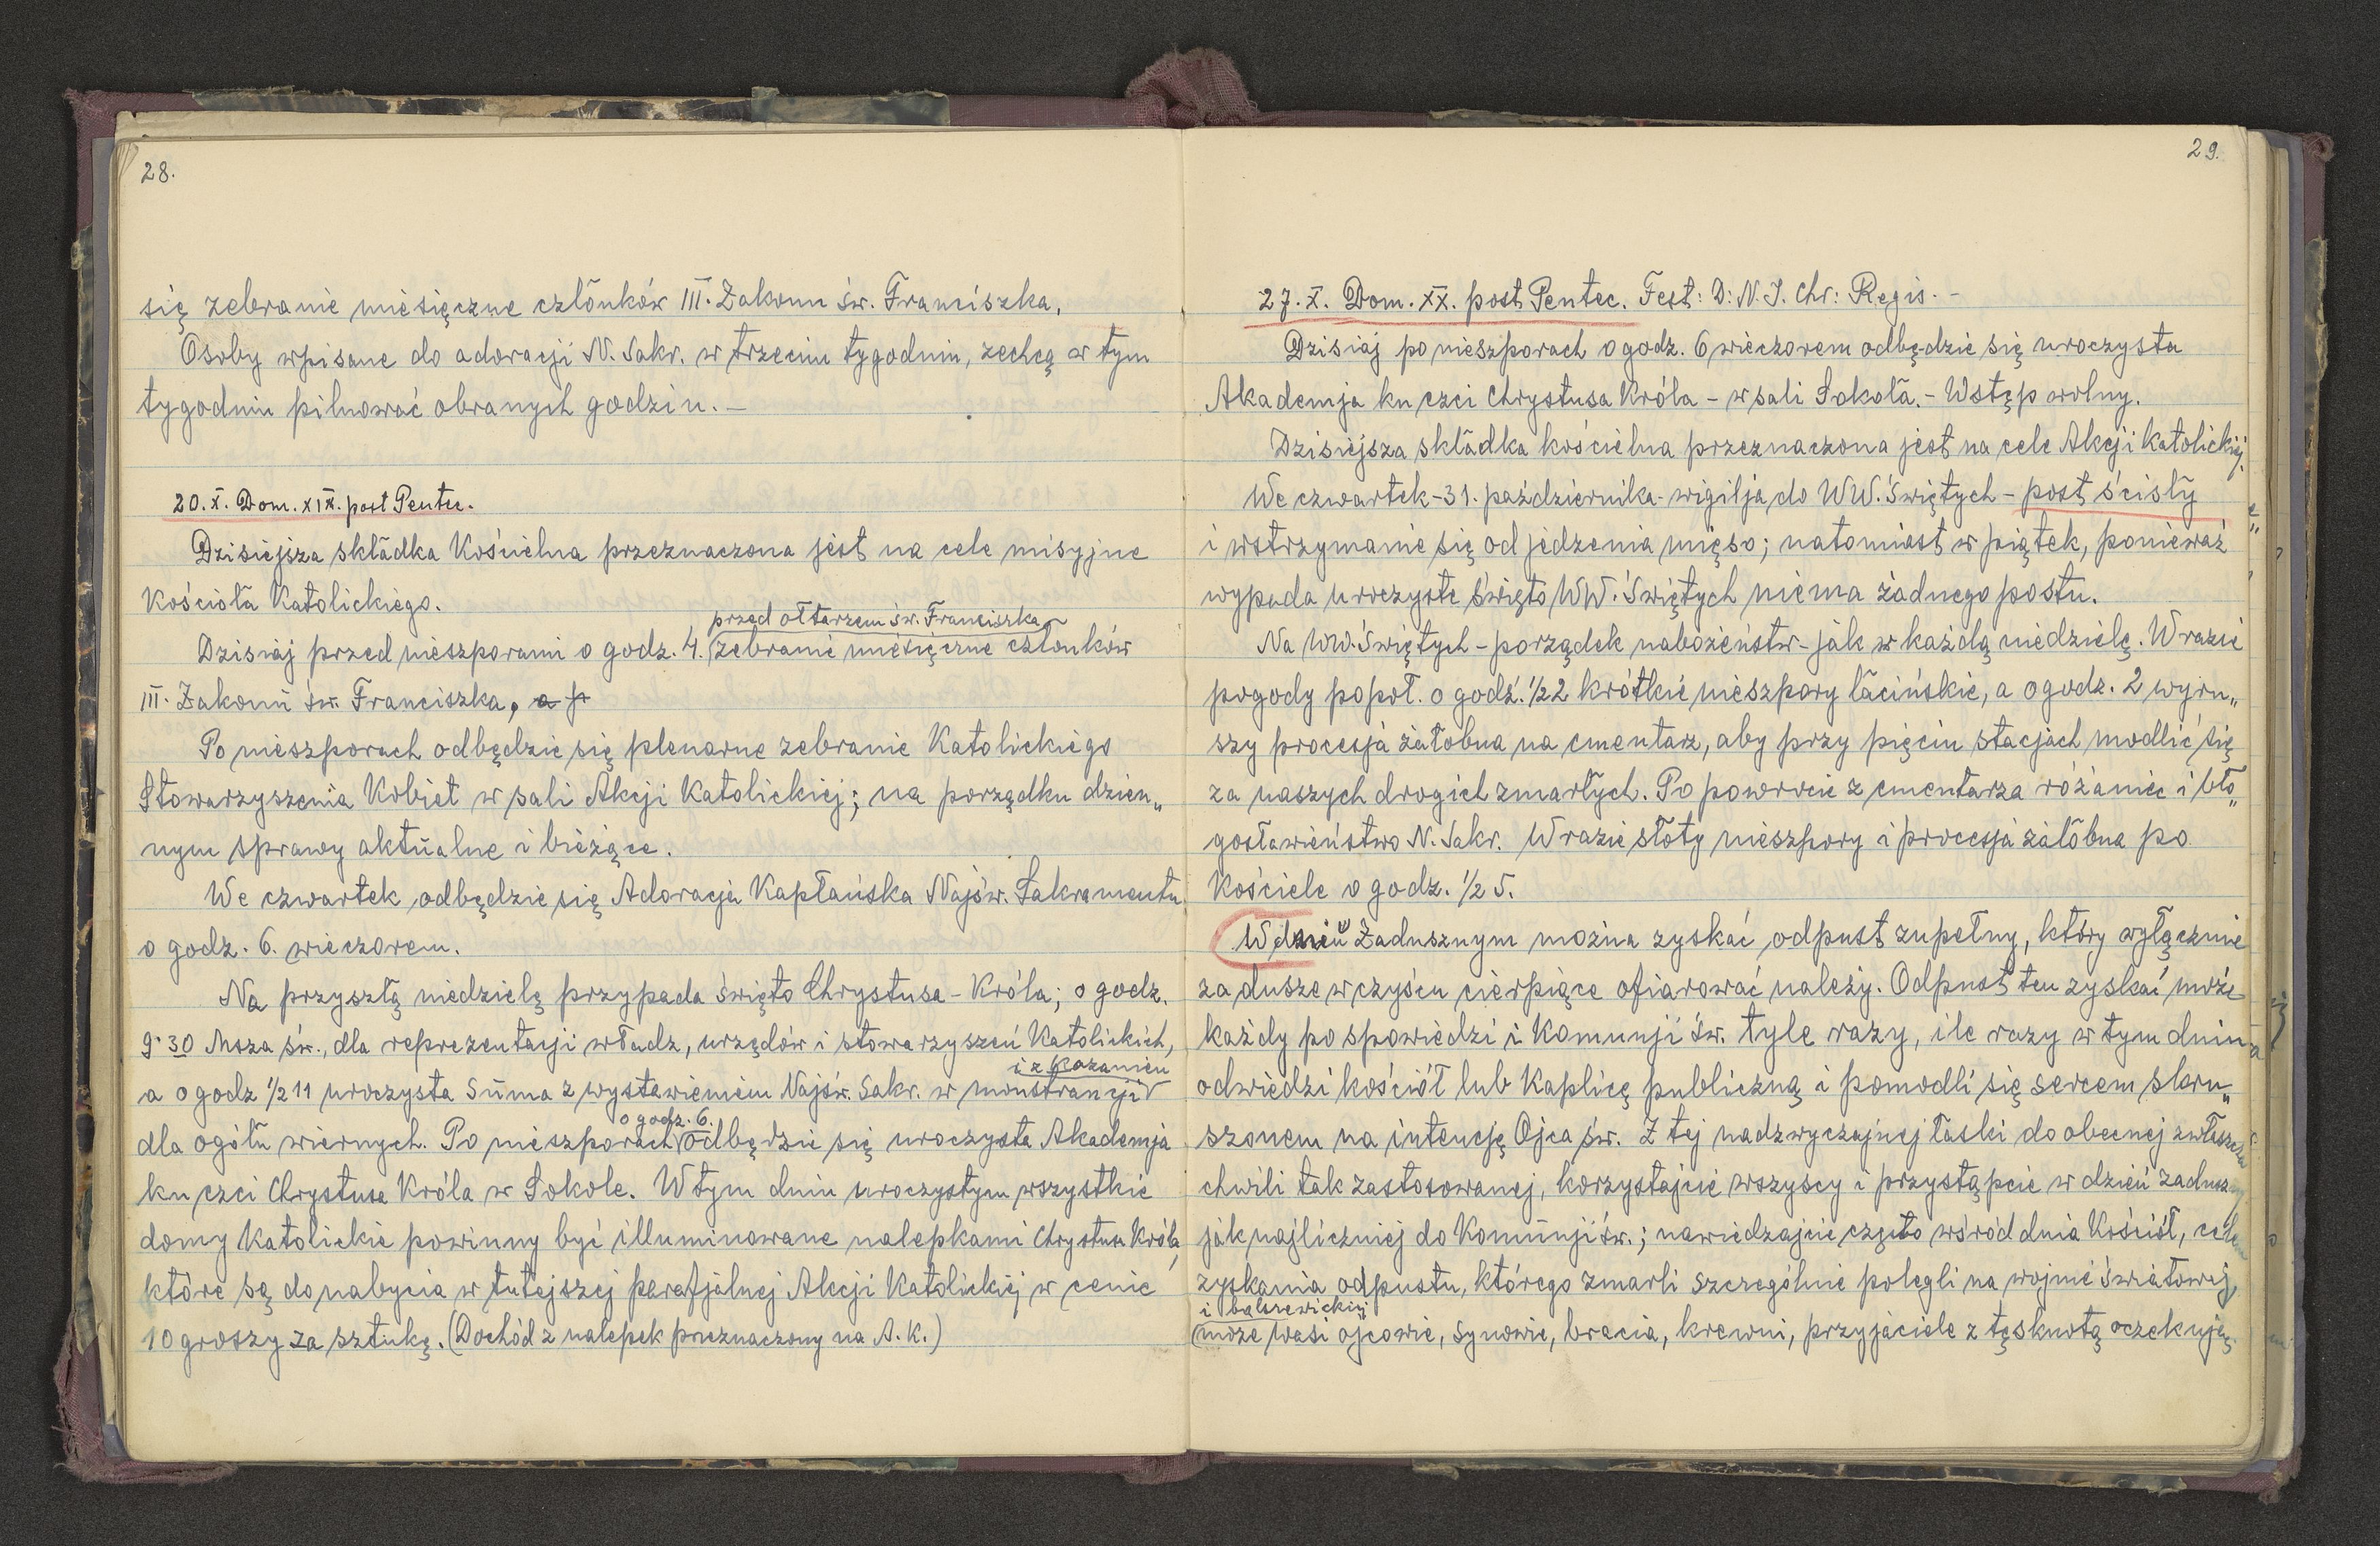 28.
się zebranie miesięczne członków III. Zakonu św. Franciszka.
Osoby wpisane do adoracji N. Sakr. w trzecim tygodniu, zechcą w tym
tygodniu pilnować obranych godzin. –
20. X. Dom. XIX. post Pentec.
Dzisiejsza składka Kościelna przeznaczona jest na cele misyjne
Kościoła Katolickiego.
przed ołtarzem św. Franciszka
Dzisiaj przed nieszporami o godz. 4. zebranie miesięczne członków
III. Zakonu św. Franciszka, a p
Po nieszporach odbędzie się plenarne zebranie Katolickiego
Stowarzyszenia Kobiet w sali Akcji Katolickiej; na porządku dzien„
nym sprawy aktualne i bieżące.
We czwartek odbędzie się Adoracja Kapłańska Najśw. Sakramentu
o godz. 6. wieczorem.
Na przyszłą niedzielę przypada święto Chrystusa - Króla; o godz.
9·30 Msza św., dla reprezentacji władz, urzędów i stowarzyszeń Katolickich,
i z Kazaniem
a o godz 1/2 11 uroczysta Suma z wystawieniem Najśw. Sakr. w monstrancji
o godz. 6.
dla ogółu wiernych. Po nieszporach odbędzie się uroczysta Akademja
ku czci Chrystusa Króla w Sokole. W tym dniu uroczystym wszystkie
domy Katolickie powinny być illuminowane nalepkami Chrystusa Króla,
które są do nabycia w tutejszej parafjalnej Akcji Katolickiej w cenie
10 groszy za sztukę. (Dochód z nalepek przeznaczony na A. K.)
29.
27. X. Dom. XX. post Pentec. Fest: D: N. J. Chr: Regis. –
Dzisiaj po nieszporach o godz. 6 wieczorem odbędzie się uroczysta
Akademja ku czci Chrystusa Króla – w sali Sokoła. – Wstęp wolny.
Dzisiejsza składka kościelna przeznaczona jest na cele Akcji Katolickiej.
We czwartek – 31. października – wigilja do WW. Świętych – post ścisły
i wstrzymanie się od jedzenia mięso; natomiast w piątek, ponieważ
wypada uroczyste święto WW. Świętych niema żadnego postu.
Na WW. Świętych – porządek nabożeństw – jak w każdą niedzielę. W razie
pogody popoł. o godz. 1/2 2 krótkie nieszpory łacińskie, a o godz. 2 wyru„
szy procesja żałobna na cmentarz, aby przy pięciu stacjach modlić się
za naszych drogich zmarłych. Po powrocie z cmentarza różaniec i bło„
gosławieństwo N. Sakr. W razie słoty nieszpory i procesja żałobna po
Kościele o godz. 1/2 5.
W dniu Zadusznym można zyskać odpust zupełny, który wyłącznie
za dusze w czyśćcu cierpiące ofiarować należy. Odpust ten zyskać może
każdy po spowiedzi i Komunji św. tyle razy, ile razy w tym dniu
odwiedzi kościół lub Kaplicę publiczną i pomodli się sercem skru„
szonem na intencję Ojca św. Z tej nadzwyczajnej łaski do obecnej zwłaszcza
chwili tak zastosowanej, korzystajcie wszyscy i przystąpcie w dzień zaduszny
jak najliczniej do Komunji św.; nawiedzajcie często wśród dnia Kościół, celem
zyskania odpustu, którego zmarli szczególnie polegli na wojnie światowej,
i bolszewickiej
może wasi ojcowie, synowie, bracia, krewni, przyjaciele z tęsknotą oczekują.